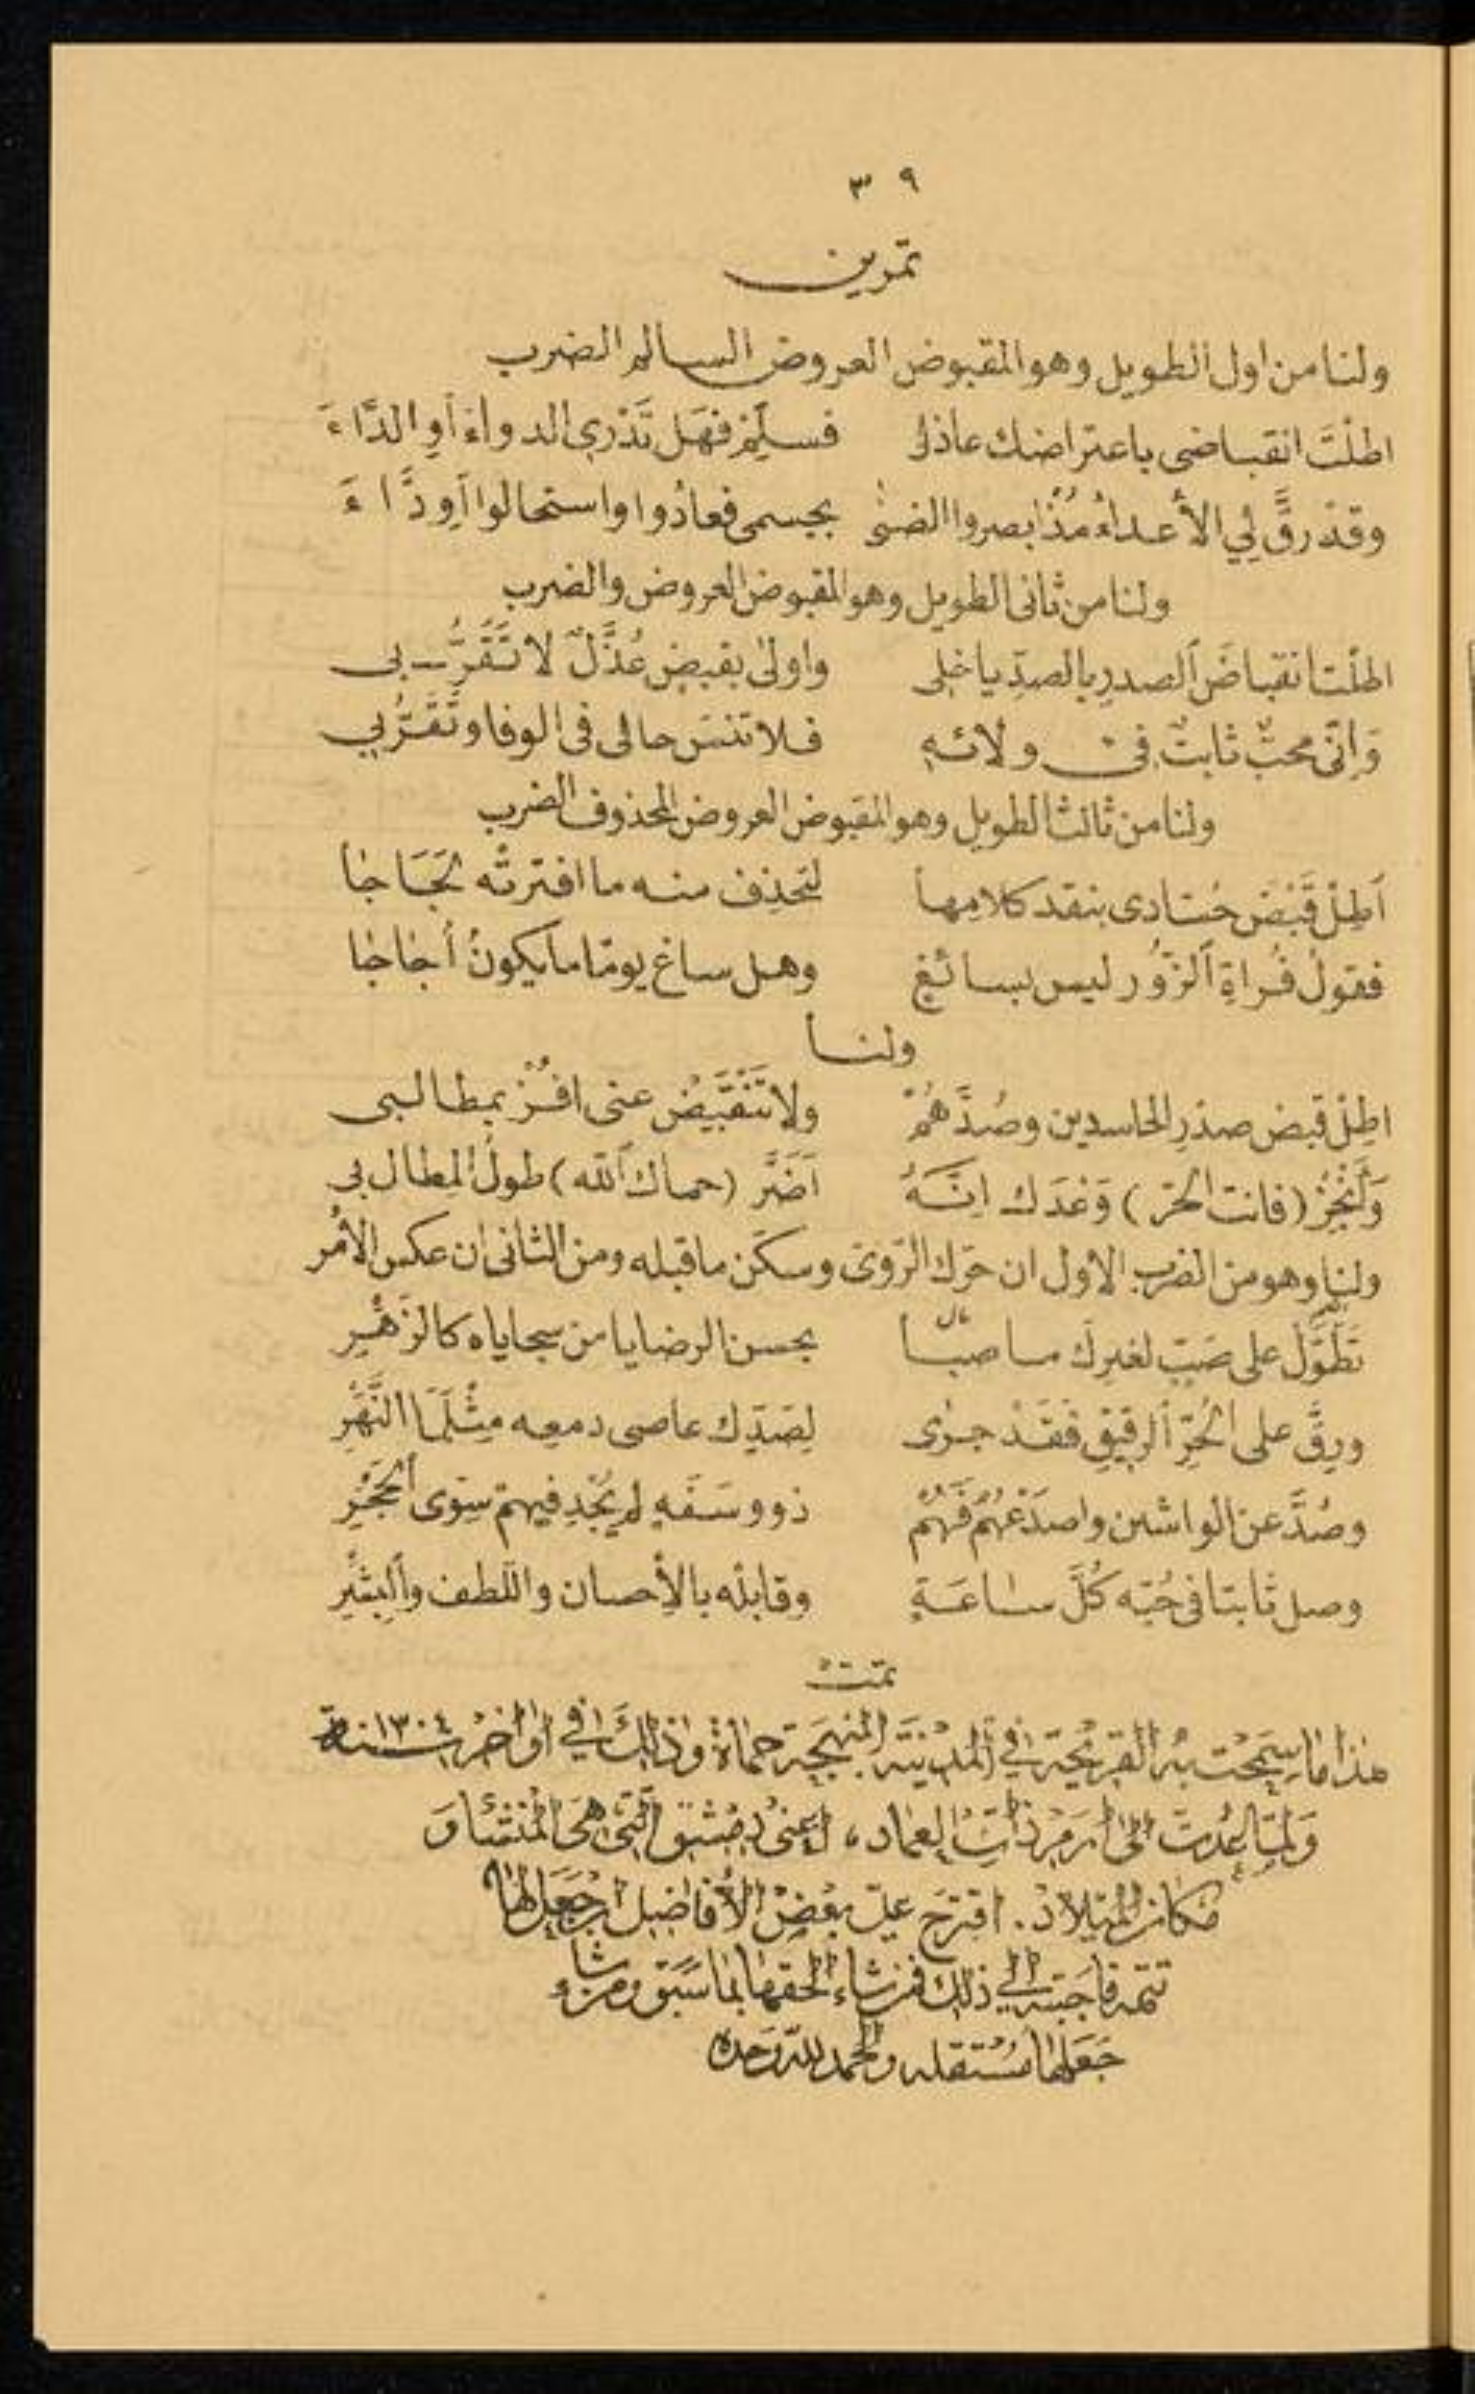 ٣٩
تمرين
ولنا من اول الطويل وهو المقبوض العروض السالم الضرب
اطلْتَ انقباضى باعتراضك عاذلى فسلِّمْ فهَل تَدْرى الدواءَ أوِ الدَّاءَ
وقدْ رقَّ لِي الأعداءُ مُذْ ابصروا الضنٰى بجسمى فعادُوا واستحالوا أَوِدَّاءَ
ولنا من ثانى الطويل وهو المقبوض العروض والضرب
اطلْت انقباضَ ٱلصدرِ بالصدِّ ياخلى واولىٰ بقبضٍ عُذَّلٌ لا تَقَرُّ بى
وَاِنّى محبٌّ ثابتٌ فى ولائهِ فلا تنسَ حالى فى الوفا وتَقَرُّبي
ولنا من ثالث الطويل وهو المقبوض العروض المحذوف الضرب
أطِلْ قَبْضَ حُسّادى بنقد كلامِها لتحذِف منه ما افترتْه لَجَاجا
فقولُ فُراةِ ٱلزُّور ليس بسائغٍ وهل ساغ يومًا ما يكونُ أُجاجا
ولنا
اطِلْ قبض صدْرِ الحاسدين وصُدَّهُمْ ولا تَنْقَبِضْ عنى افُزْ بمطالبى
وَأَنْجِزْ (فانت الحرّ) وَعْدَك اِنَّهُ أَضَرَّ (حماك ٱللّه) طولُ المِطال بى
ولنا وهو من الضرب الاول ان حرّك الرّوىّ وسكّن ما قبله ومن الثانى ان عكس الأمْر
تَطَوَّلْ على صَبٍّ لغيرك ما صبا مال بحسن الرضا يا من سجاياه كالزَهْرِ
ورِقَّ على الحُرِّ ٱلرقيقِ فَقَدْ جرٰى لِصَدِّك عاصى دمعه مِثْلَمَا النَّهْرِ
وصُدَّ عن الواشين واصدَعْهُمُ فَهُمْ ذوو سَفَهٍ لم يُجْدِ فيهمْ سِوى ٱلحَجْرِ
وصل ثابتا فى حُبّه كُلَّ ساعَةٍ وقابلْه بالأِحسان واللّطف وٱلبِشْرِ
تمت
هٰذا ما سمحت به القريحة في المدينة المنهجة حماة وذلك في اواخر سنة ١٣٠٤
ولمّا عُدت الى ارم ذات العماد، اعنى دمشق التى هى المنشا و
مكان الميلاد. اقترح علىّ بعض الأفاضل ان اجعل لها
تتمة فاجبته الى ذلك فمن شاء الحقها بما سبق ومن شاء
جعلها مستقلة والحمد للّه وحده